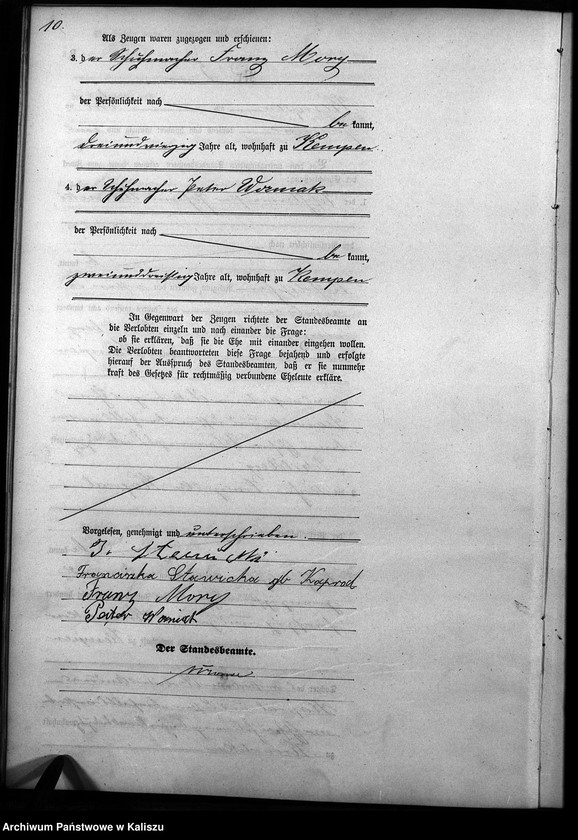 10.
Als Zeugen waren zugezogen und erschienen:
3. der Schuhmacher Franz Mory
der Persönlichkeit nach
bekannt,
dreiundvierzig Jahre alt, wohnhaft zu Kempen
4. der Schuhmacher Peter Worniak
der Persönlichkeit nach
bekannt,
zweiunddreißig Jahre alt, wohnhaft zu Kempen
In Gegenwart der Zeugen richtete der Standesbeamte an
die Verlobten einzeln und nach einander die Frage:
ob sie erklären, daß sie die Ehe mit einander eingehen wollen.
Die Verlobten beantworteten diese Frage bejahend und erfolgte
hierauf der Ausspruch des Standesbeamten, daß er sie nunmehr
kraft des Gesetzes für rechtmäßig verbundene Eheleute erkläre.
Vorgelesen, genehmigt und unterschrieben.
Franciszka Stawicka
Franz Mory
Peter
Der Standesbeamte.
Archiwum Państwowe w Kaliszu